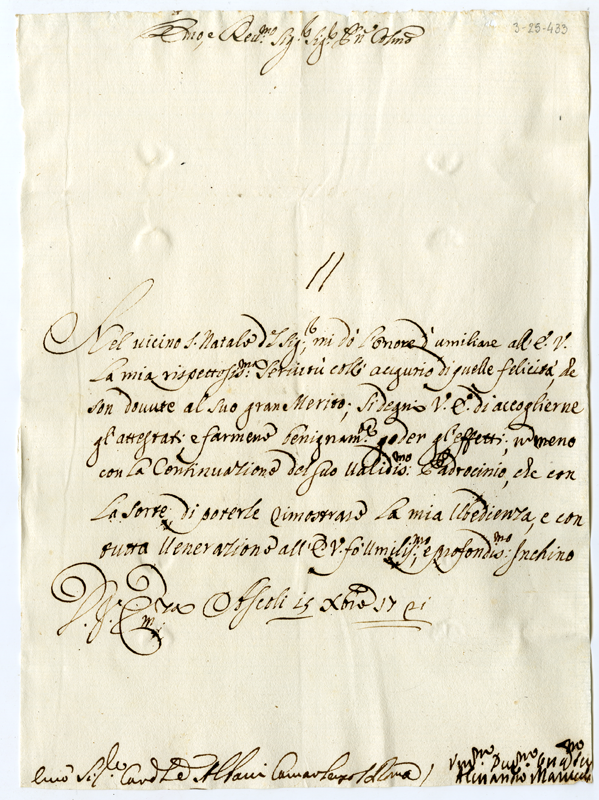 3-25-433
Emo, e Reumo Sigr Sigr Prōn Colmo
Nel vicino S. Natale del Sigre; mi dò l'onore d'umiliare all'E. V.
La mia rispettosma: Servitù coll'augurio di quelle felicità, che
son douute al suo gran Merito; Si degni V. E. di accoglierne
gl'attestati e farmene benignamte: goder gl'effetti, non meno
con la Continuazione del suo Validismo: Padrocinio, che con
La Sorte di poterle dimostrare La mia Ubedienza, e con
tutta Venerazione all'E. V. fò Umilismo; e profondismo: Inchino
D. V. Emza Ascoli 15 Xbre 1721
Emo Sige Cardle Albani Camarlengo
Alessandro